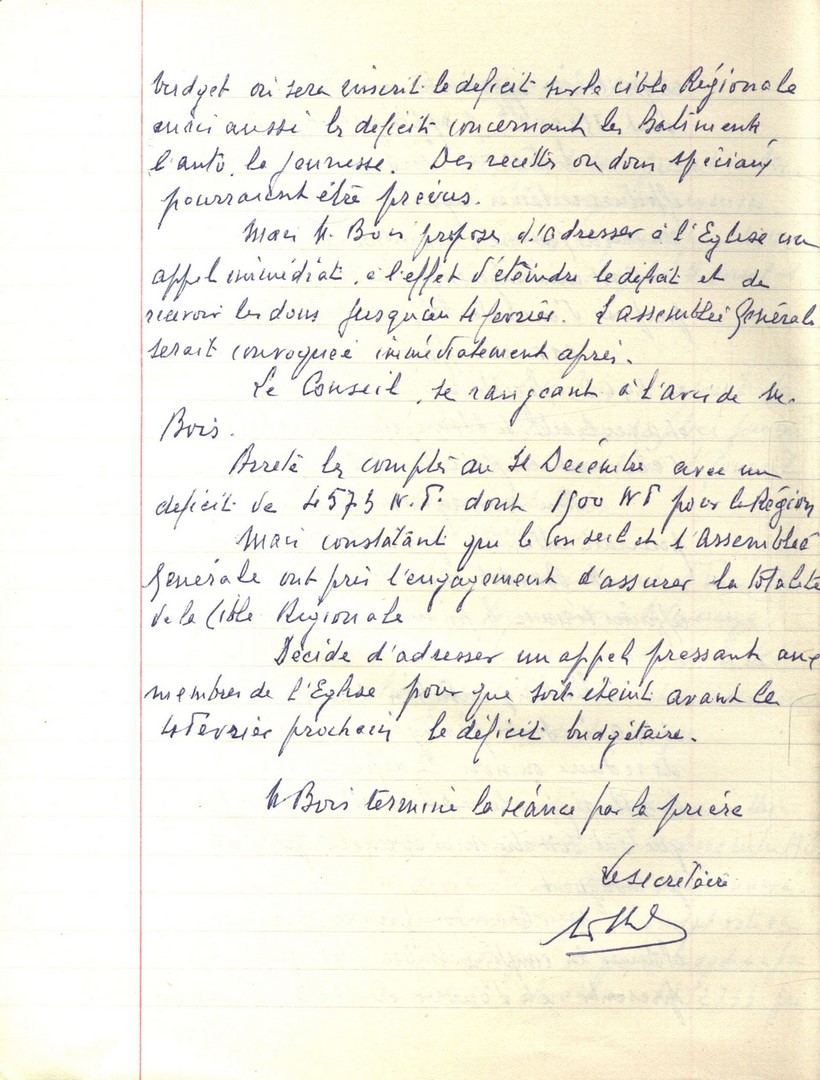 budget où sera inscrit le deficit sur la cible Régionale
mais aussi les deficits concernant les Batiments,
l'auto, la Jeunesse. Des recettes ou dons spéciaux
pourraient être prévus.
Mais M. Bois propose d'adresser à l'Eglise un
appel immédiat, à l'effet d'éteindre le déficit et de
recevoir les dons jusqu'au 4 fevrier. L'assemblée Générale
serait convoquée immédiatement après.
Le Conseil, se rangeant à l'avis de M.
Bois.
Arrete les comptes au 31 Decémbre avec un
deficit de 4573 N.F. dont 1900 NF pour la Région
Mais constatant que le Conseil et l'Assemblée
Générale ont pris l'engagement d'assurer la totalité
de la Cible Regionale
Décide d'adresser un appel pressant aux
membres de l'Eglise pour que soit éteint avant le
4 Fevrier prochain le déficit budgétaire.
M Bois termine la séance par la prière
Le secretaire